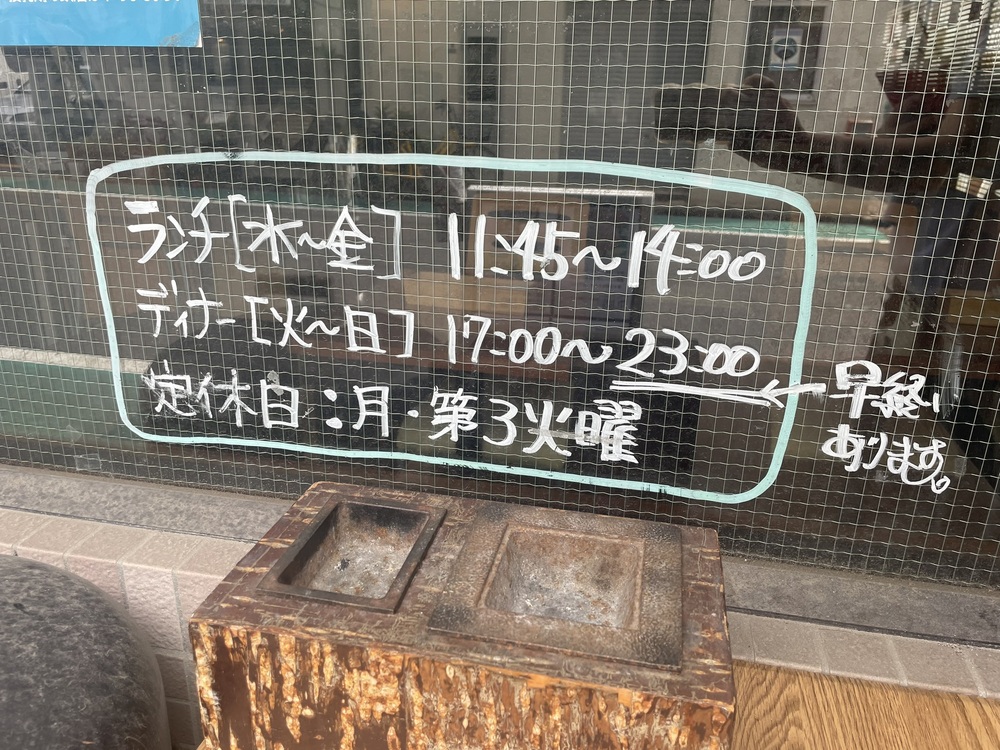 ランチ[水〜金] 11:45〜14:00
ディナー[火〜日] 17:00〜23:00
定休日:月・第3火曜
早終い
あります。